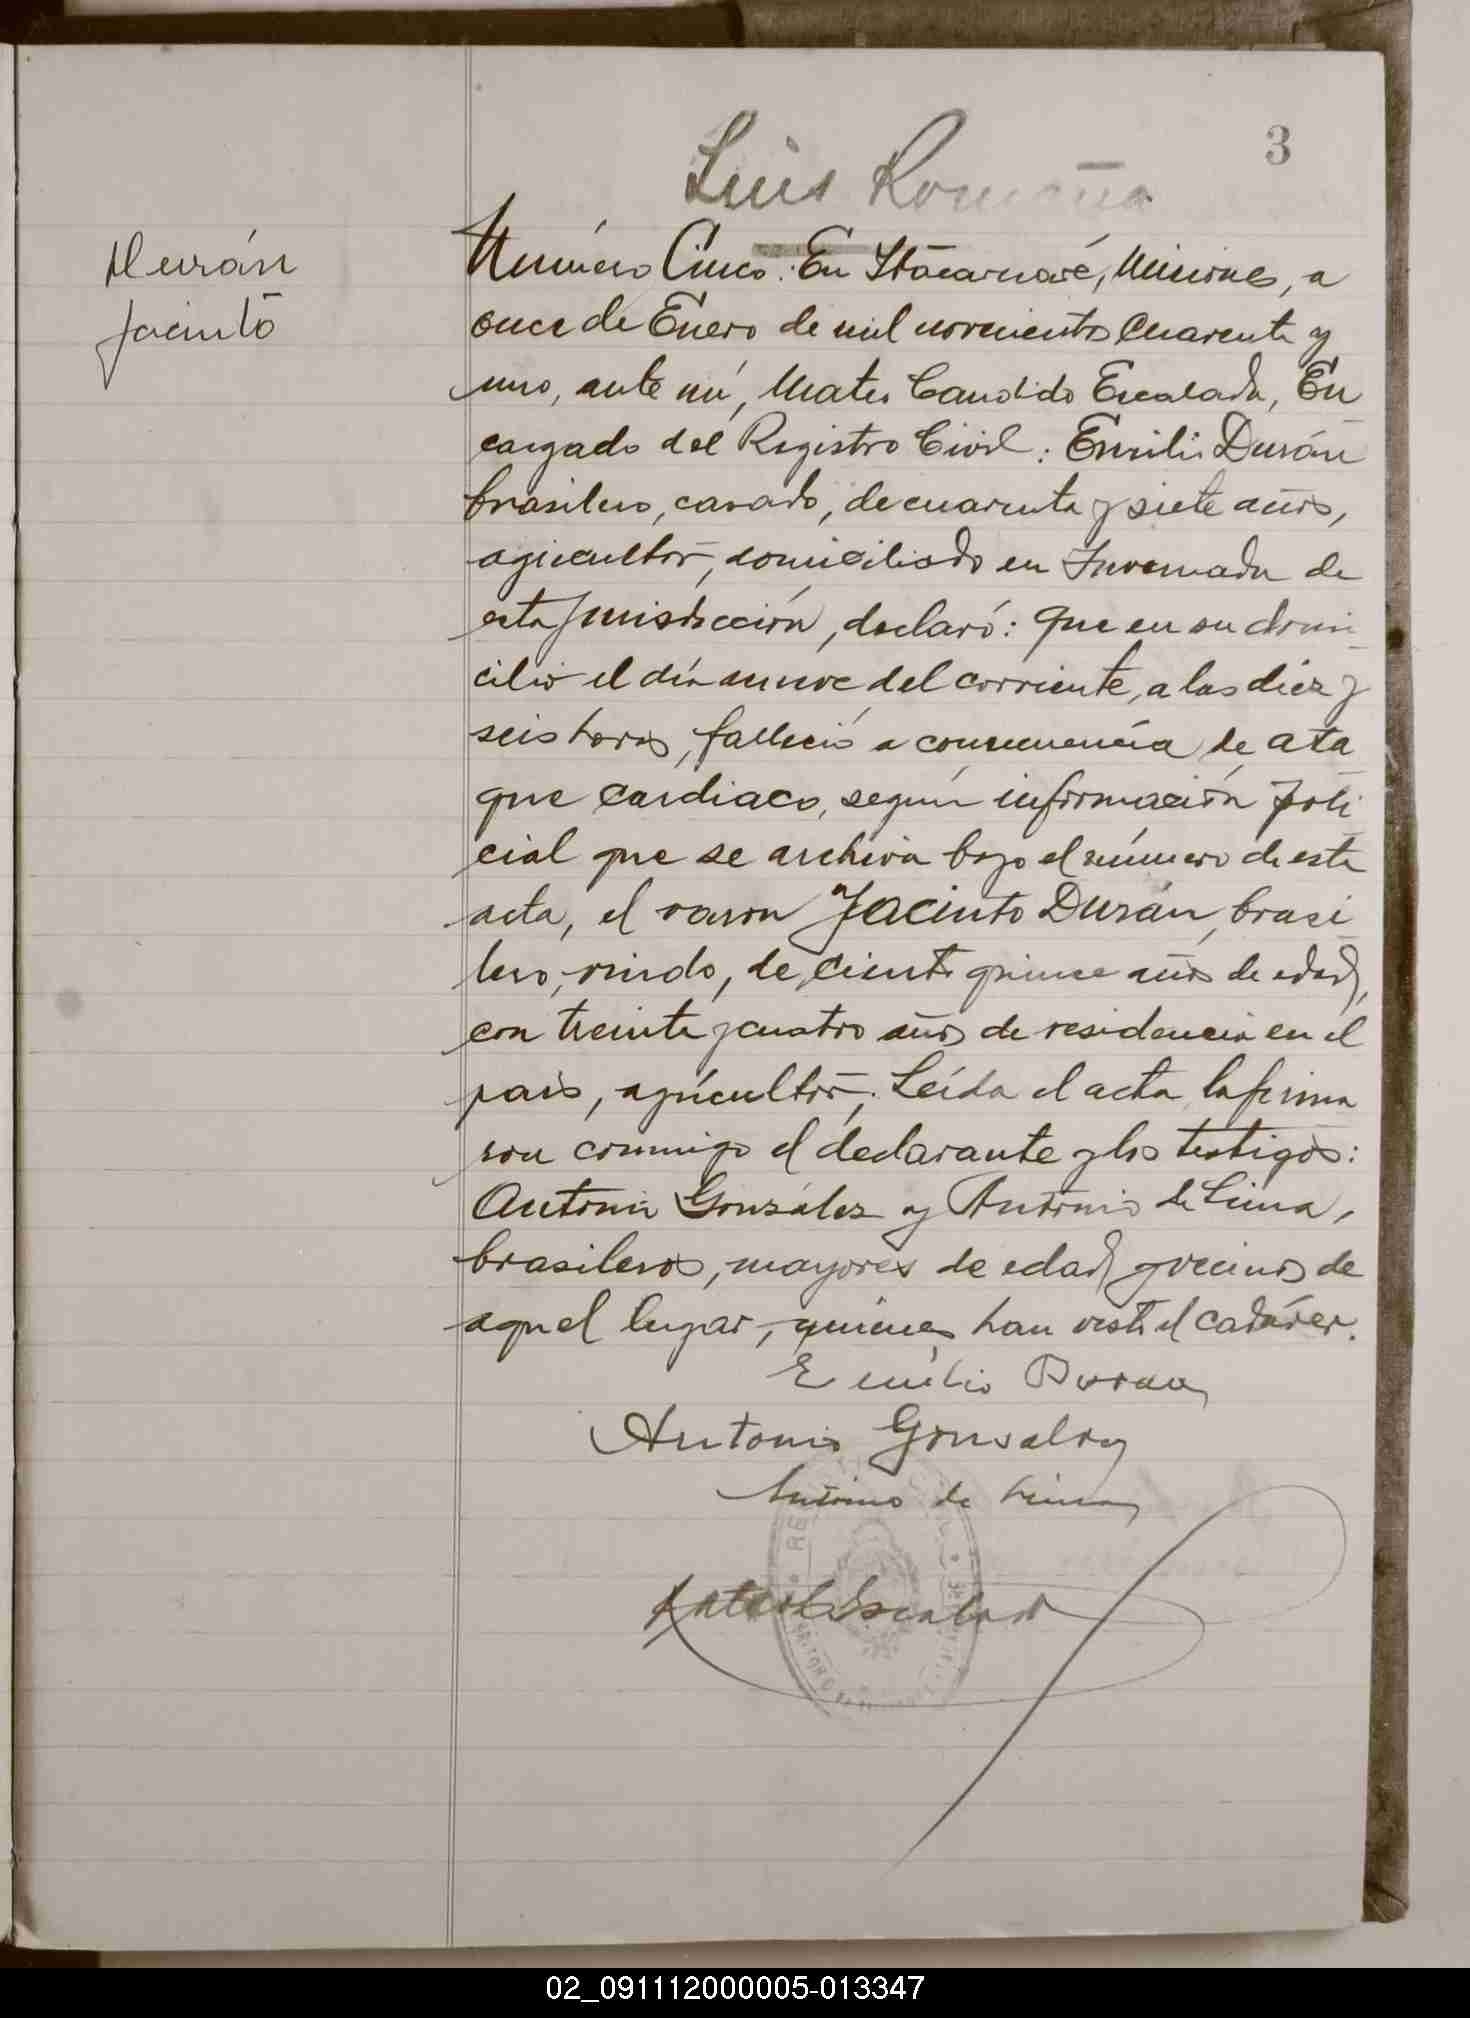 3
Luis Romaña
Durán
Jacinto
Número Cinco: En Itacaruaré, Misiones, a
once de Enero de mil novecientos cuarenta y
uno, ante mí, Mateo Candido Escalada, En
cargado del Registro Civil: Emilio Durán
brasilero, casado, de cuarenta y siete años,
agricultor, domiciliado en Invernada de
esta jurisdicción, declaró: Que en su domi
cilio el día nueve del corriente, a las diez y
seis horas, falleció a consecuencia de ata
que cardiaco, según información poli
cial que se archiva bajo el número de esta
acta, el varon Jacinto Durán, brasi
lero, viudo, de ciento quince años de edad,
con treinta y cuatro años de residencia en el
pais, agricultor. Leída el acta la firma
ron conmigo el declarante y los testigos:
Antonio González y Antonio de Lima,
brasileros, mayores de edad y vecinos de
aquel lugar, quienes han visto el cadáver.
Emilio Duran
Antonio Gonsalez
Antonio de Lima
Mateo C. Escalada
02_091112000005-013347